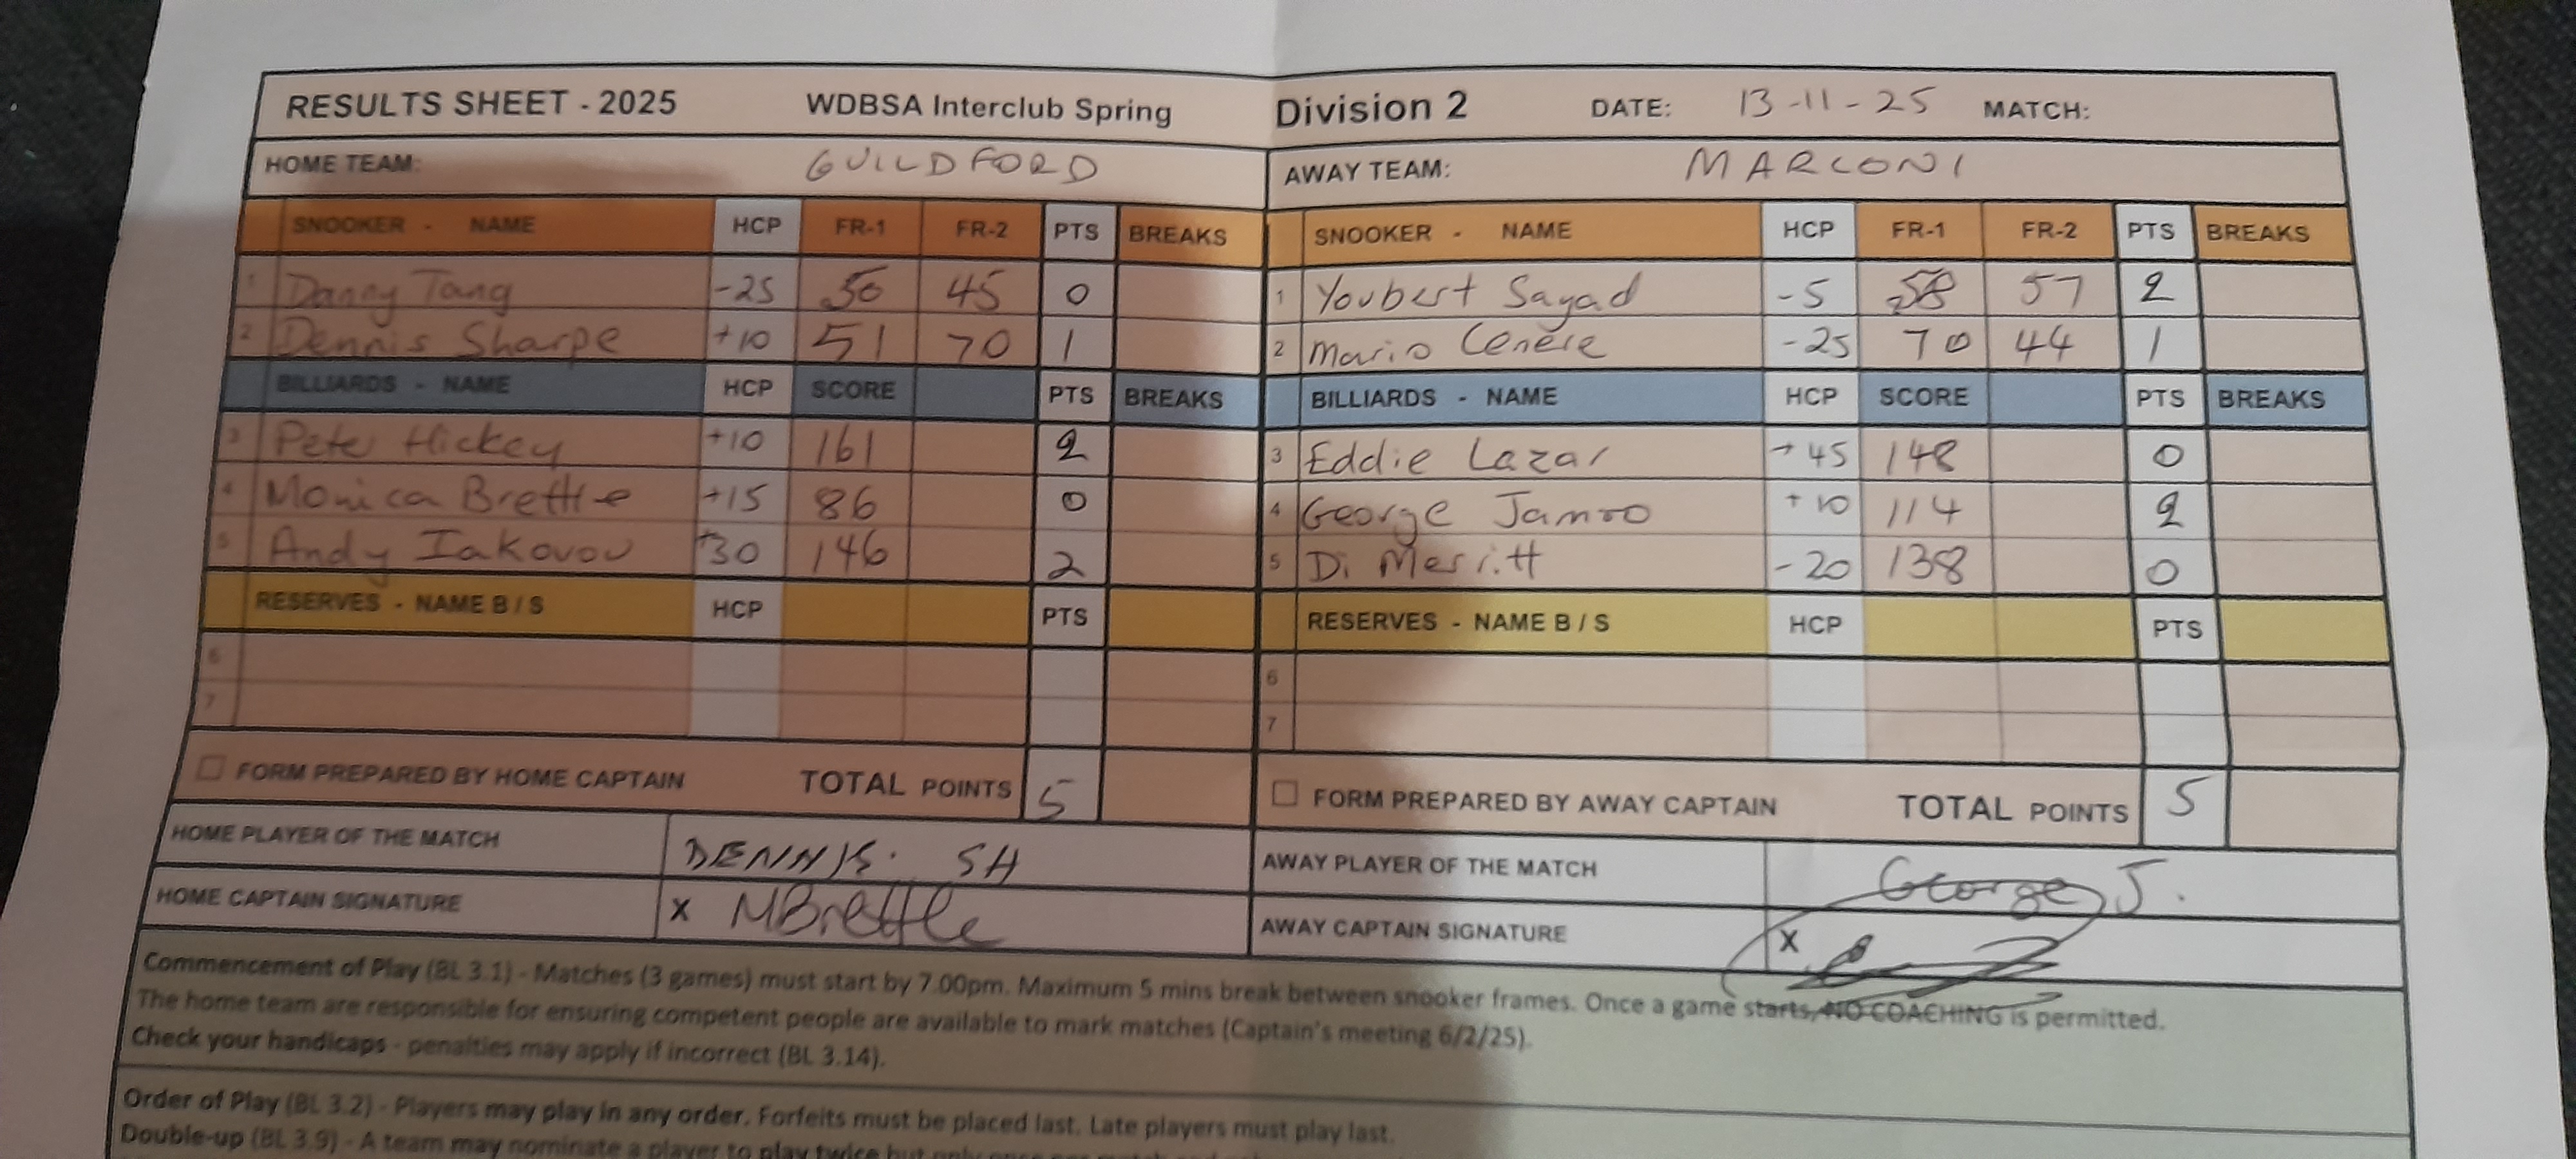 RESULTS SHEET - 2025 WDBSA Interclub Spring Division 2 DATE: 13-11-25 MATCH:
HOME TEAM: GUILDFORD AWAY TEAM: MARCONI
SNOOKER - NAME HCP FR-1 FR-2 PTS BREAKS 1 SNOOKER - NAME HCP FR-1 FR-2 PTS BREAKS
1 Danny Tang -25 50 45 0 1 Youbert Sayad -5 58 57 2
2 Dennis Sharpe +10 51 70 1 2 Mario Cenere -25 70 44 1
BILLIARDS - NAME HCP SCORE PTS BREAKS BILLIARDS - NAME HCP SCORE PTS BREAKS
3 Pete Hickey +10 161 2 3 Eddie Lazar +45 148 0
4 Monica Brettle +15 86 0 4 George Jamro +10 114 2
5 Andy Iakovou +30 146 2 5 Di Merritt -20 138 0
RESERVES - NAME B / S HCP PTS RESERVES - NAME B / S HCP PTS
6 6
7 7
FORM PREPARED BY HOME CAPTAIN TOTAL POINTS 5 FORM PREPARED BY AWAY CAPTAIN TOTAL POINTS 5
HOME PLAYER OF THE MATCH DENNIS. SH AWAY PLAYER OF THE MATCH George J.
HOME CAPTAIN SIGNATURE X MBrettle AWAY CAPTAIN SIGNATURE X
Commencement of Play (BL 3.1) - Matches (3 games) must start by 7.00pm. Maximum 5 mins break between snooker frames. Once a game starts, NO COACHING is permitted.
The home team are responsible for ensuring competent people are available to mark matches (Captain's meeting 6/2/25).
Check your handicaps - penalties may apply if incorrect (BL 3.14).
Order of Play (BL 3.2) - Players may play in any order. Forfeits must be placed last. Late players must play last.
Double-up (BL 3.9) - A team may nominate a player to play twice but only once per match and